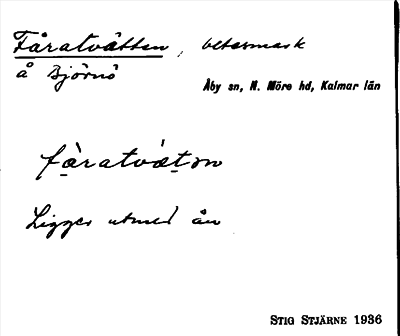 Fåratvätten, betesmark
å Björnö
Åby sn, N. Möre hd, Kalmar län
fàratvät̠ən
Ligger utmed ån
STIG STJÄRNE 1936